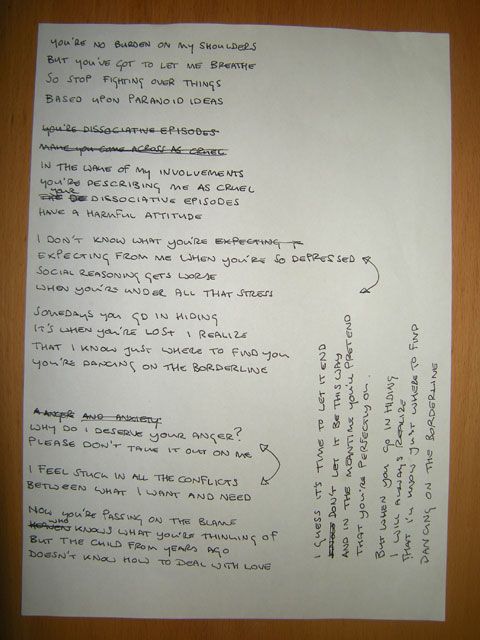 YOU'RE NO BURDEN ON MY SHOULDERS
BUT YOU'VE GOT TO LET ME BREATHE
SO STOP FIGHTING OVER THINGS
BASED UPON PARANOID IDEAS
YOU'RE DISSOCIATIVE EPISODES
MAKE YOU COME ACROSS AS CRUEL
IN THE WAKE OF MY INVOLVEMENTS
YOU'RE DESCRIBING ME AS CRUEL
YOUR DISSOCIATIVE EPISODES
HAVE A HARMFUL ATTITUDE
I DON'T KNOW WHAT YOU'RE EXPECTING
EXPECTING FROM ME WHEN YOU'RE SO DEPRESSED
SOCIAL REASONING GETS WORSE
WHEN YOU'RE UNDER ALL THAT STRESS
SOMEDAYS YOU GO IN HIDING
IT'S WHEN YOU'RE LOST I REALIZE
THAT I KNOW JUST WHERE TO FIND YOU
YOU'RE DANCING ON THE BORDERLINE
ANGER AND ANXIETY
WHY DO I DESERVE YOUR ANGER?
PLEASE DON'T TAKE IT OUT ON ME
I FEEL STUCK IN ALL THE CONFLICTS
BETWEEN WHAT I WANT AND NEED
NOW YOU'RE PASSING ON THE BLAME
HEAVEN WHO KNOWS WHAT YOU'RE THINKING OF
BUT THE CHILD FROM YEARS AGO
DOESN'T KNOW HOW TO DEAL WITH LOVE
I GUESS IT'S TIME TO LET IT END
DON'T LET IT BE THIS WAY
AND IN THE MEANTIME YOU'LL PRETEND
THAT YOU'RE PERFECTLY OK.
BUT WHEN YOU GO IN HIDING
I WILL ALWAYS REALIZE
THAT I'LL KNOW JUST WHERE TO FIND
DANCING ON THE BORDERLINE